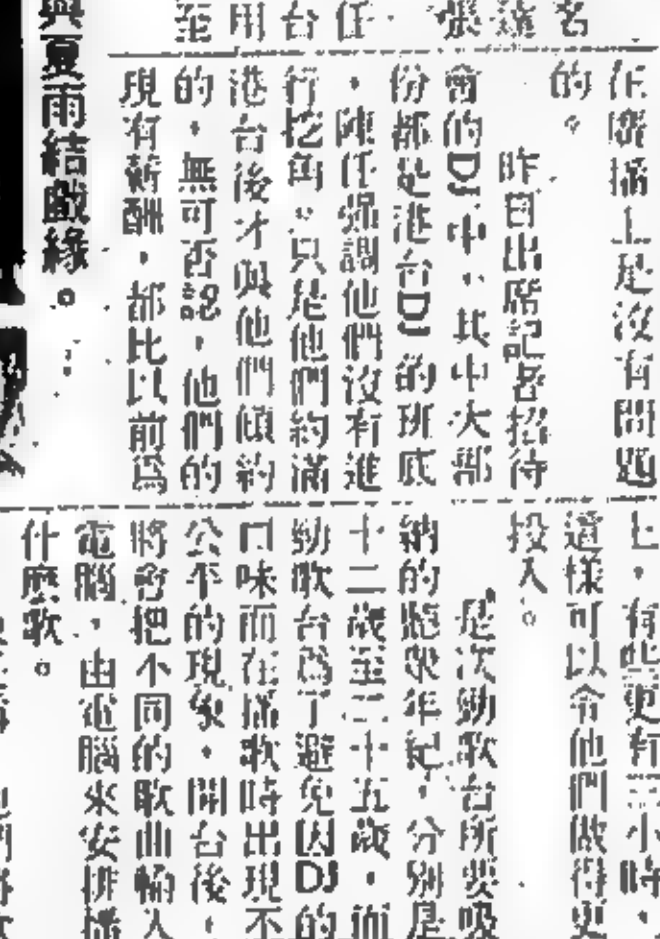 名
張達
任
台
用
至
在廣播上是沒有問題
的。
昨日出席記者招待
會的DJ中，其中大部
份都是港台DJ的班底
，陳任強調他們沒有進
行挖角。只是他們約滿
港台後才與他們傾約
的，無可否認，他們的
現有薪酬，都比以前爲
與夏雨結戲緣。
七，有些更有三小時，
這樣可以令他們做得更
投入。
是次勁歌台所要吸
納的聽衆年紀，分別是
十二歲至二十五歲，而
勁歌台爲了避免因DJ的
口味而在播歌時出現不
公平的現象，開台後，
將會把不同的歌曲輸入
電腦，由電腦來安排播
什麽歌。